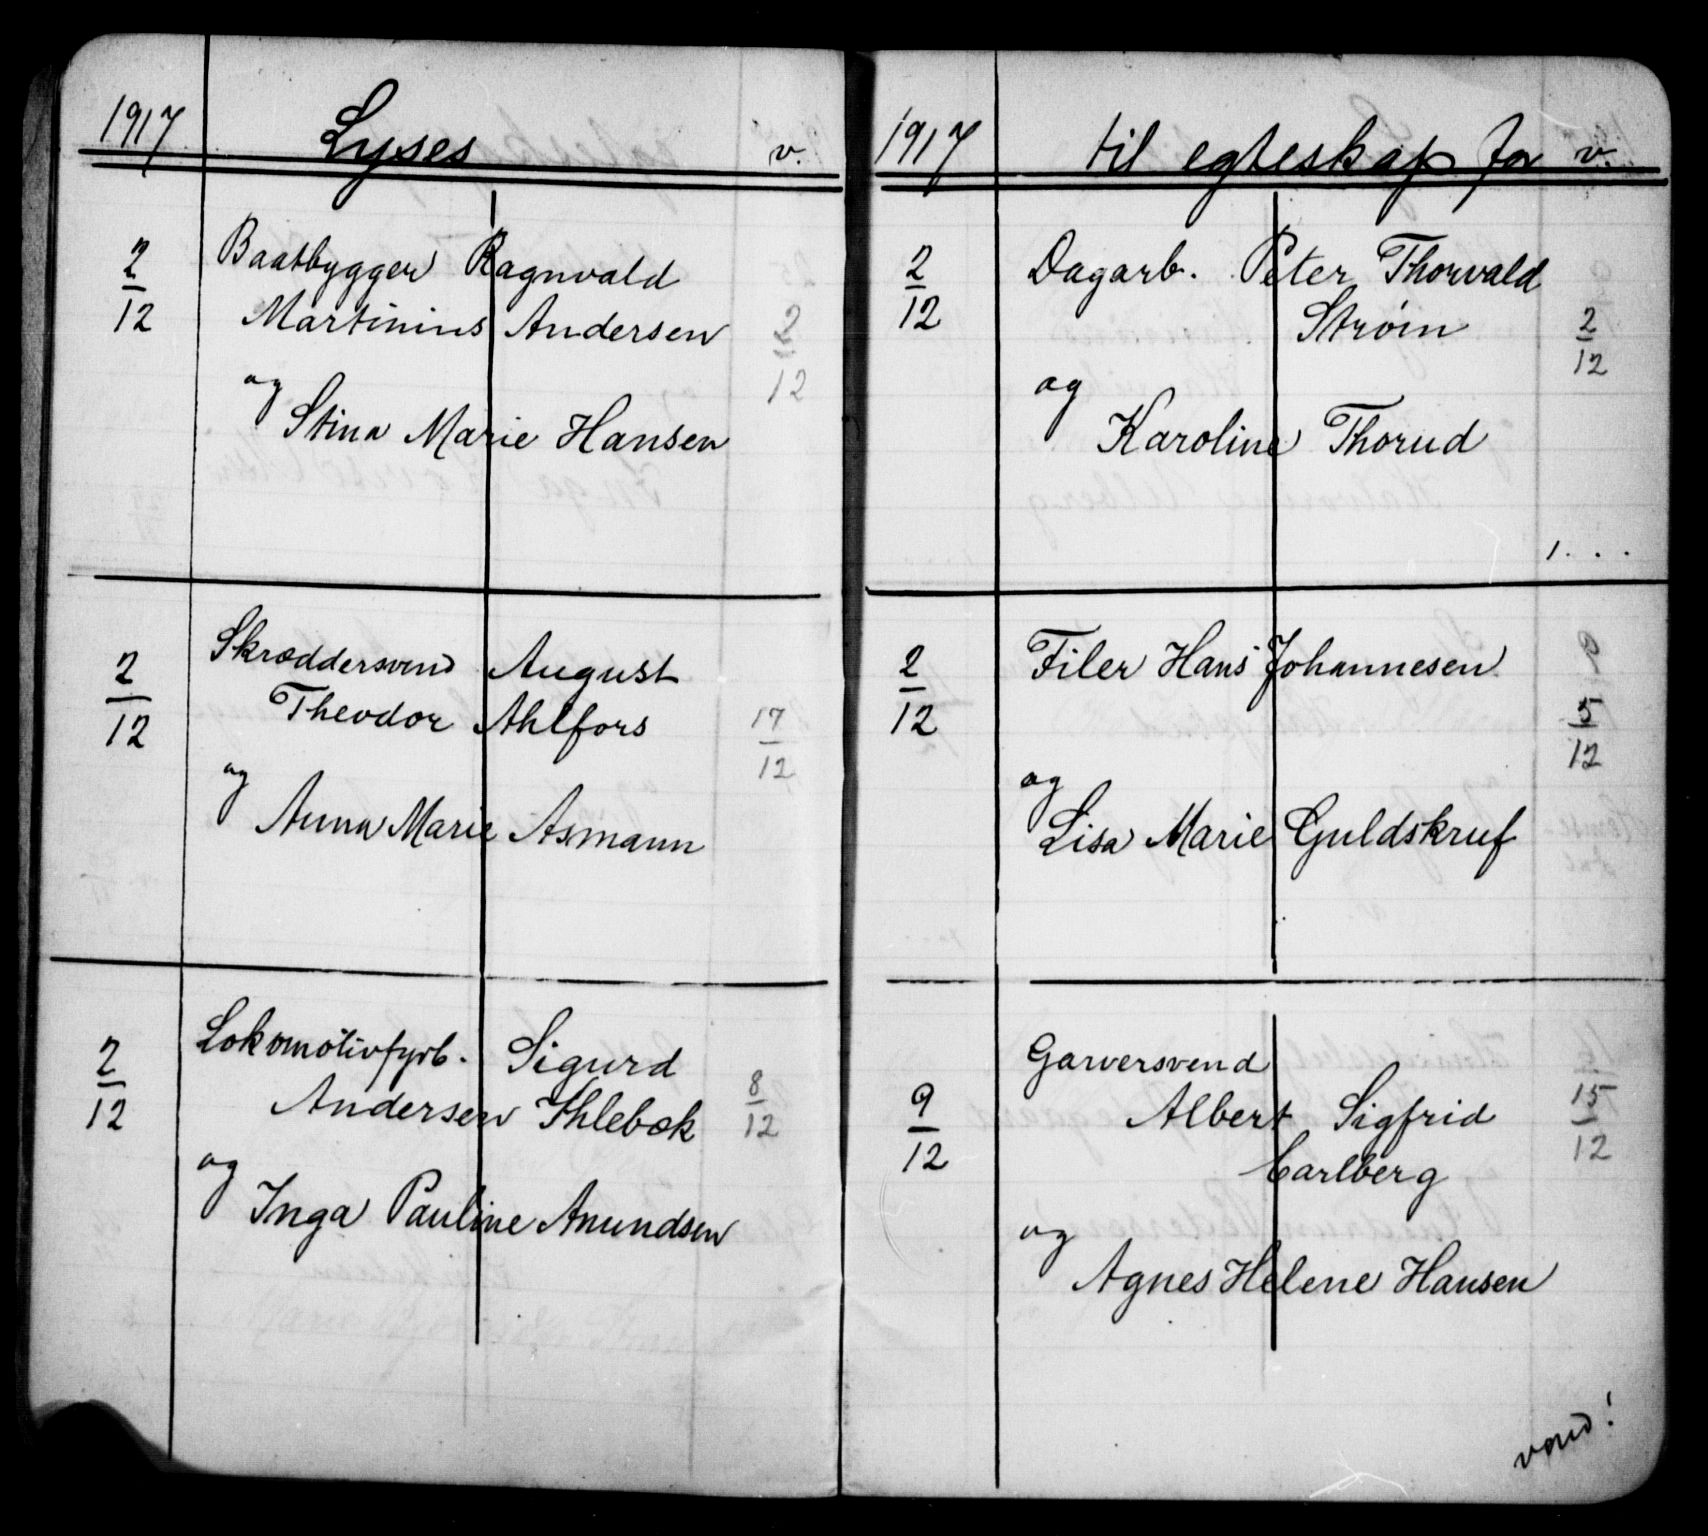 1917 Lyses v.
2/12 Baatbygger Ragnvald
Martinius Andersen 2/12
og
Stina Marie Hansen
2/12 Skræddersvend August
Theodor Ahlfors 17/12
og
Anna Marie Asmann
2/12 Lokomotivfyrb. Sigurd
Andersen Ihlebæk 8/12
og
Inga Pauline Anundsen
1917 til egteskap for v.
2/12 Dagarb. Peter Thorvald
Strøm 2/12
og
Karoline Thorud
2/12 Filer Hans Johannesen
5/12
og
Lisa Marie Guldskruf
Garversvend
9/12 Albert Sigfrid 15/12
Carlberg
og
Agnes Helene Hansen
vend!